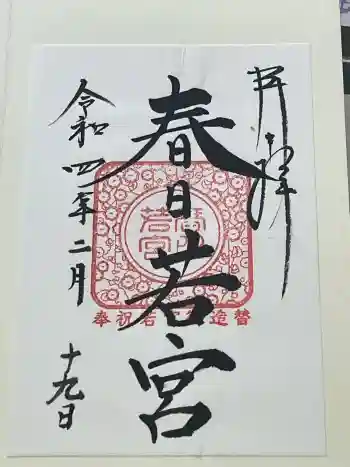 奉拝
春日若宮
令和四年二月
十九日
若宮
奉祝若宮造替